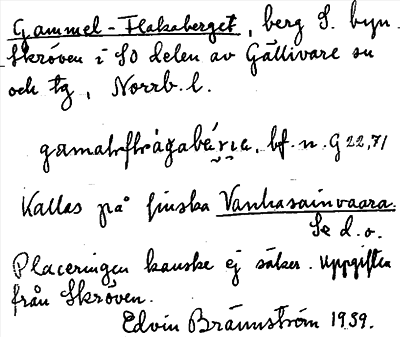 Gammel-Flakaberget, berg S. byn
Skröven i SO delen av Gällivare sn
och tg, Norrb. l.
bf. n. G 22,71
Kallas på finska Vanhasainvaara.
Se d. o.
Placeringen kanske ej säker. Uppgiften
från Skröven.
Edvin Brännström 1939.